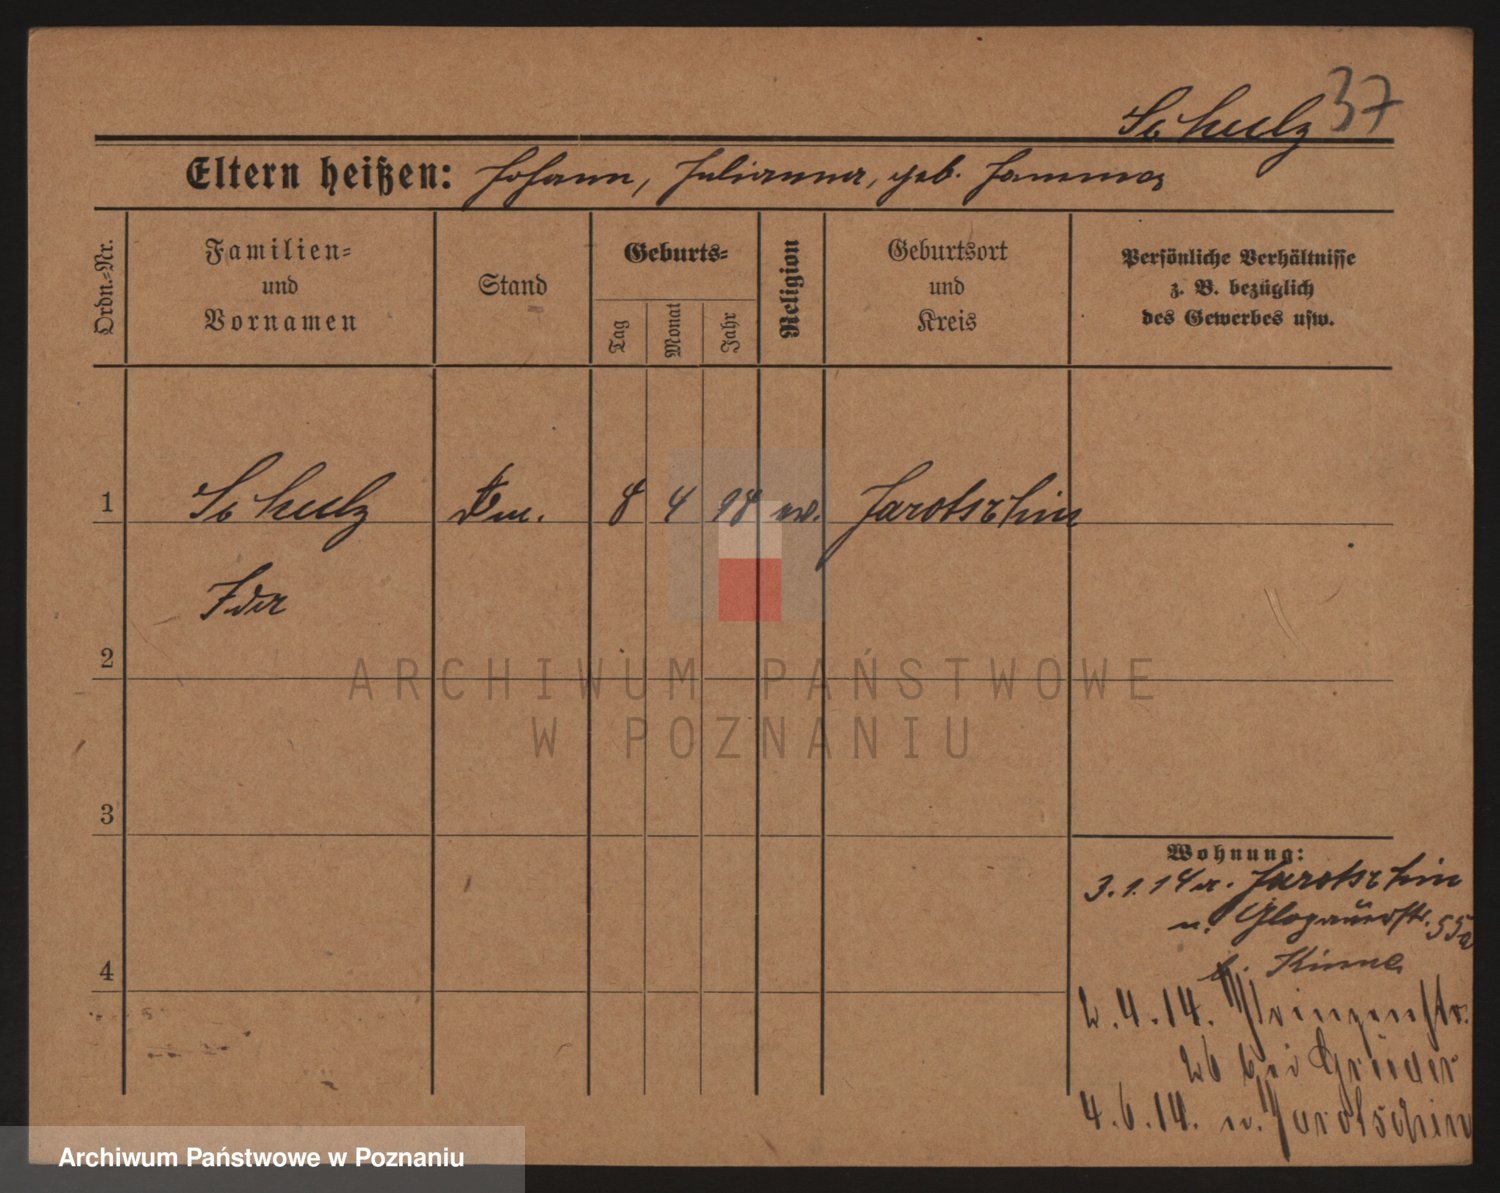 Schulz 37
Eltern heißen: Johann, Julianna, geb.
Ordn.=Nr.
Familien=
und
Vornamen
Stand
Geburts=
Tag
Monat
Jahr
Religion
Geburtsort
und
Kreis
Persönliche Verhältnisse
z. B. bezüglich
des Gewerbes usw.
1 Schulz 8 4 98 ev. Jarotschin
Ida
2
3
4
Wohnung:
3.1.14 a. Jarotschin
n. Glogauerstr. 55a
b.
2.4.14. Prinzenstr.
26 bei Grüder
4.6.14. n. Jarotschin
ARCHIWUM PAŃSTWOWE
W POZNANIU
Archiwum Państwowe w Poznaniu